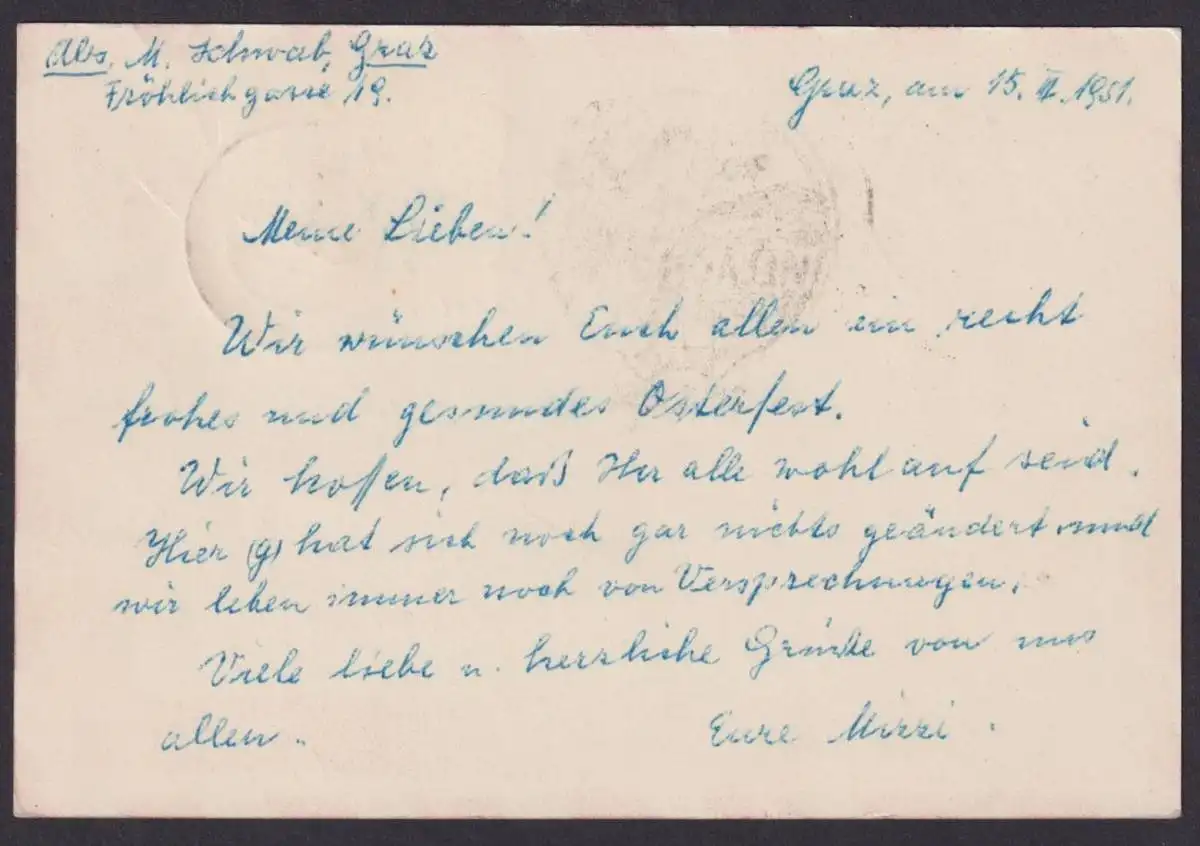 Abs. M. Schwab, Graz
Fröhlichgasse 19.
Graz, am 15. II. 1951.
Meine Lieben!
Wir wünschen Euch allen ein recht
frohes und gesundes Osterfest.
Wir hoffen, daß Ihr alle wohlauf seid.
Hier (g) hat sich noch gar nichts geändert und
wir leben immer noch von Versprechungen.
Viele liebe u. herzliche Grüße von uns
allen.
Eure Mizzi.